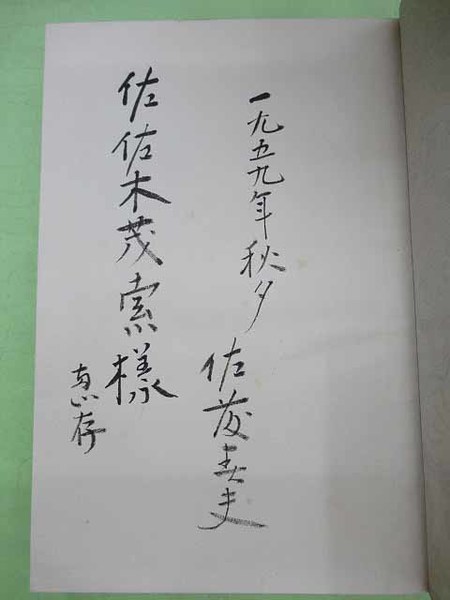 一九五九年秋夕
佐藤春夫
佐佐木茂索様
恵存